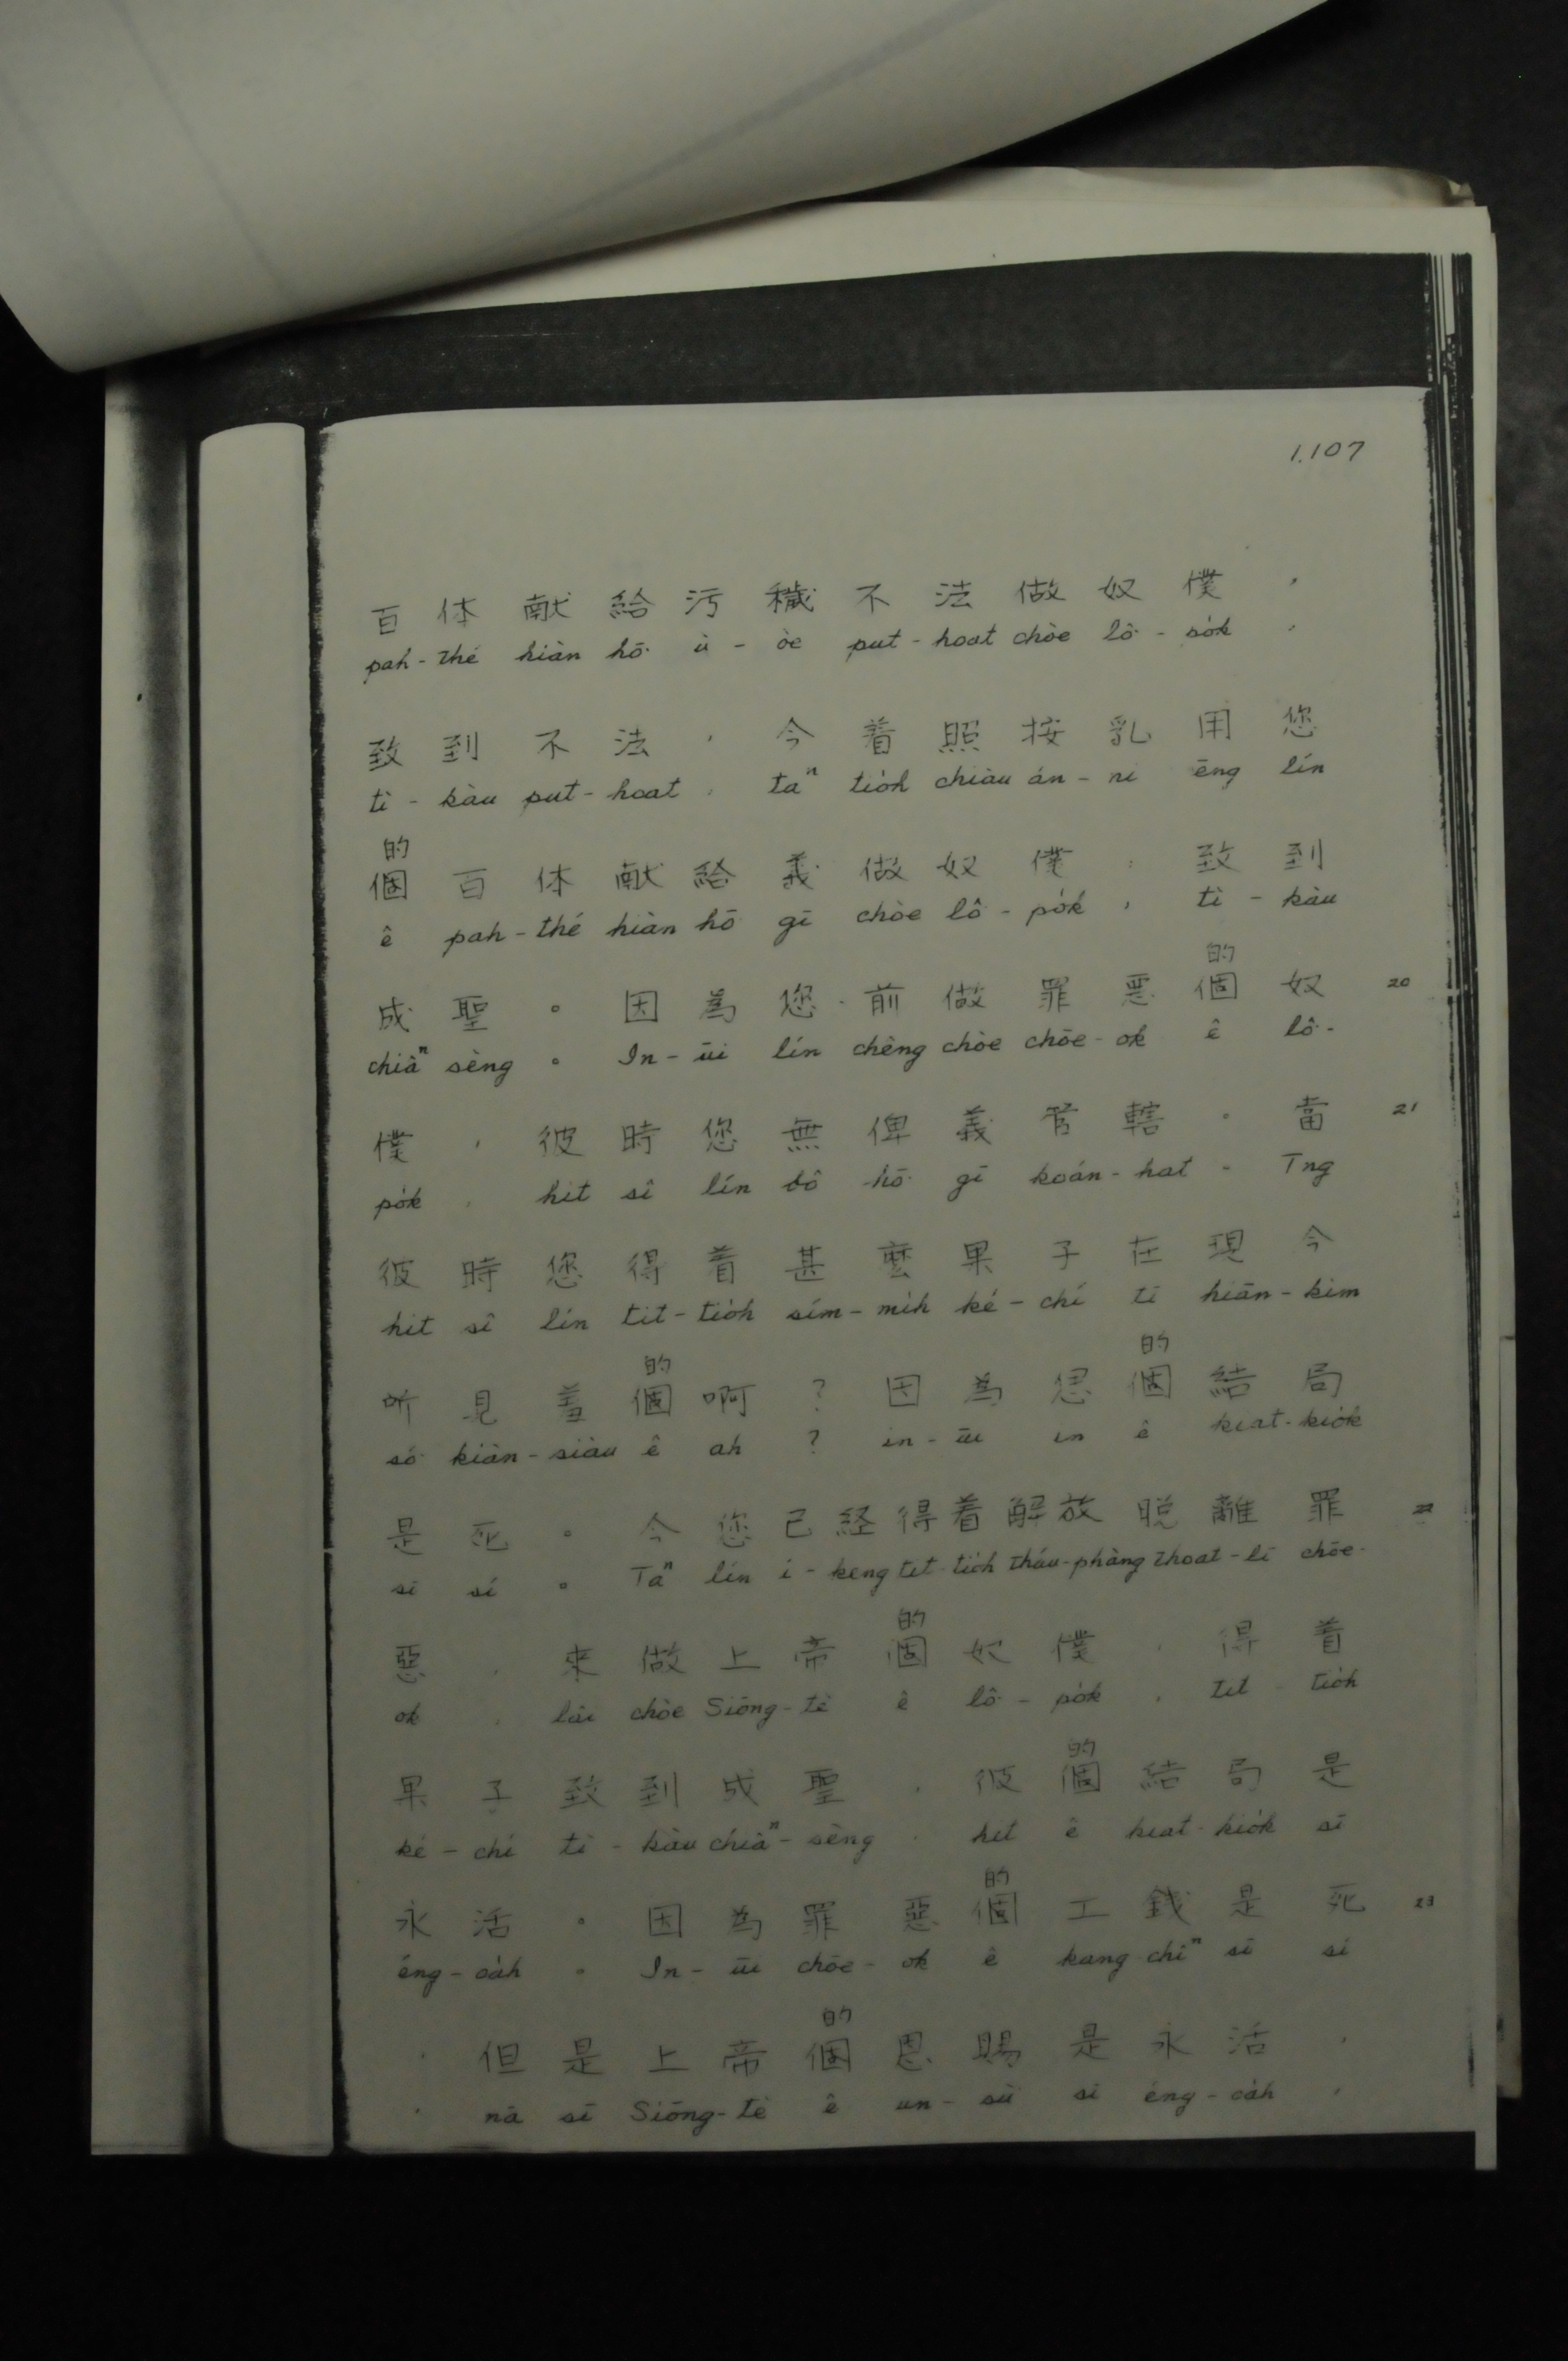 1.107
百体献給污穢不法做奴僕，
pah-thé hiàn hō͘ ù-òe put-hoat chòe lô͘-po̍k,
致到不法，今着照按乳用您
tì-kàu put-hoat, taⁿ tio̍h chiàu án-ni ēng lín
的
個百体献給義做奴僕，致到
ê pah-thé hiàn hō͘ gī chòe lô͘-po̍k, tì-kàu
的
成聖。因為您前做罪惡個奴 20
chiâⁿ sèng. In-ūi lín chêng chòe chōe-ok ê lô͘-
僕，彼時您無俾義管轄。當 21
po̍k, hit sî lín bô hō͘ gī koán-hat. Tng
彼時您得着甚麼果子在現今
hit sî lín tit-tio̍h sím-mi̍h ké-chí tī hiān-kim
的 的
所見羞個啊？因為㑲個結局
só͘ kiàn-siàu ê ah? in-ūi in ê kiat-kio̍k
是死。今您已経得着解放脱離罪 22
sī sí. Taⁿ lín í-keng tit-tio̍h tháu-phàng thoat-lī chōe-
的
惡，來做上帝個奴僕，得着
ok, lâi chòe Siōng-tè ê lô͘-po̍k, tit-tio̍h
的
果子致到成聖，彼個結局是
ké-chí tì-kàu chiâⁿ-sèng, hit ê kiat-kio̍k sī
的
永活。因為罪惡個工錢是死 23
éng-oa̍h. In-ūi chōe-ok ê kang chîⁿ sī sí
的
，但是上帝個恩賜是永活，
, nā sī Siōng-tè ê un-sù sī éng-oa̍h,